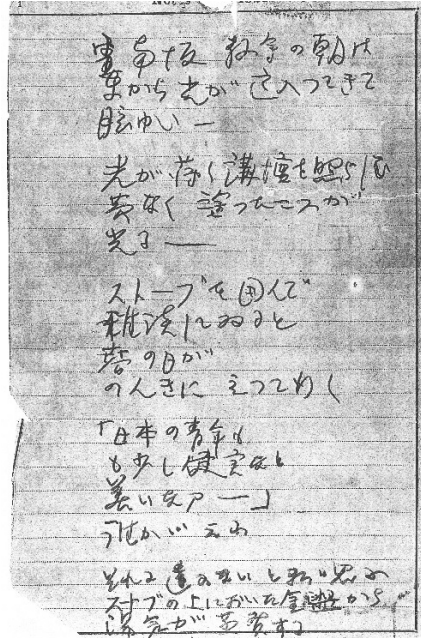 霊南坂 教会の朝は
東から光が 這入つてきて
眩ゆい—
光が 薄く講壇を照らして
黄なく 塗つたニスが
光る——
ストーブを囲んで
雑談してゐると
冬の日が
のんきに 立つてゆく
「日本の青年も
も少し健実だと
善いなアー」
誰かが 云ふ
それに違ひないと私が思ふ
ストーブの上においた金盥から
湯気が蒸発する